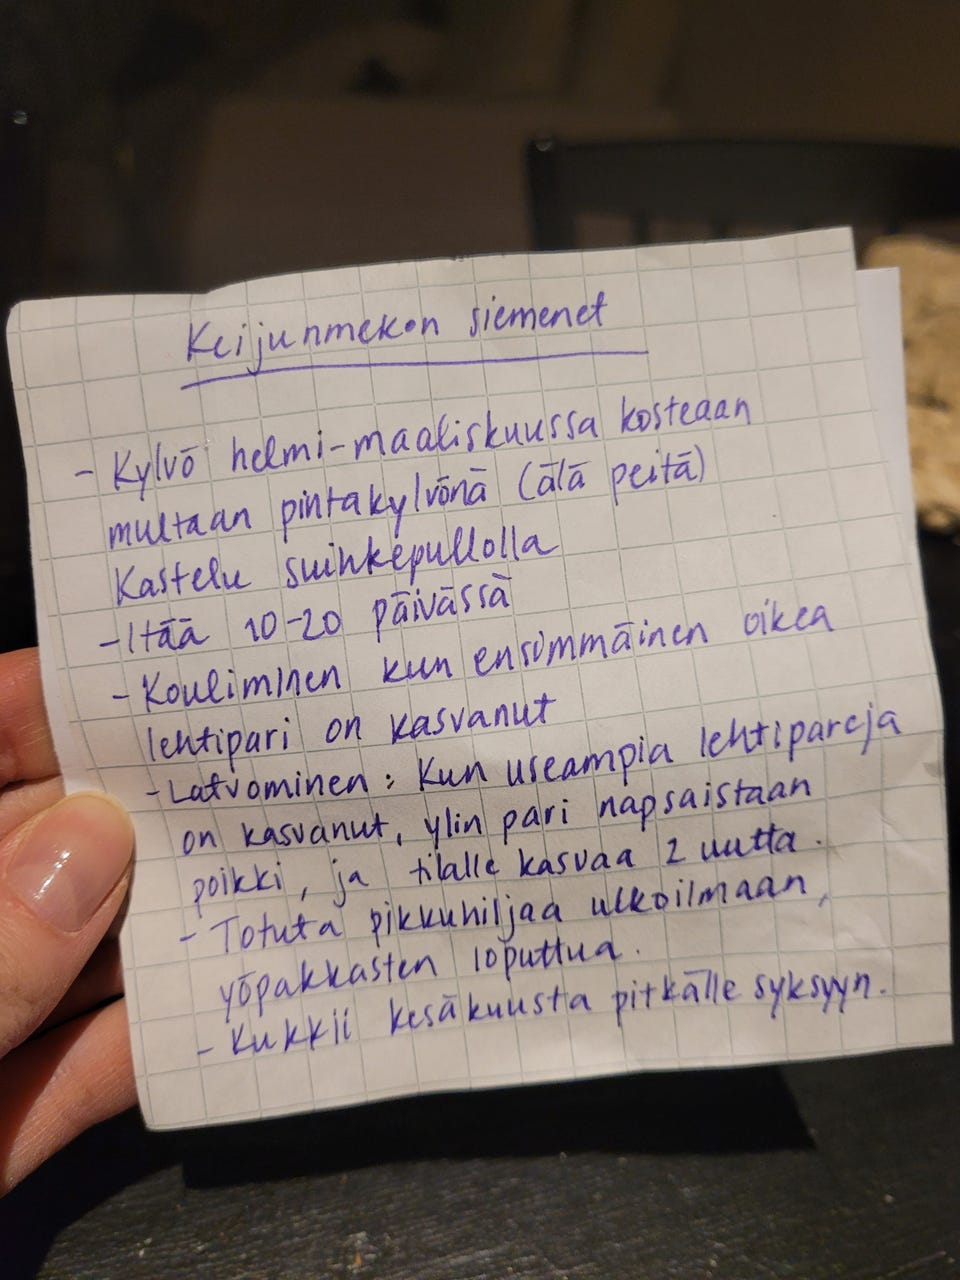 Keijunmekon siemenet
- Kylvö helmi-maaliskuussa kosteaan
multaan pintakylvönä (älä peitä)
Kastelu suihkepullolla
- Itää 10-20 päivässä
- Kouliminen kun ensimmäinen oikea
lehtipari on kasvanut
- Latvominen: Kun useampia lehtipareja
on kasvanut, ylin pari napsaistaan
poikki, ja tilalle kasvaa 2 uutta.
- Totuta pikkuhiljaa ulkoilmaan,
yöpakkasten loputtua.
- Kukkii kesäkuusta pitkälle syksyyn.